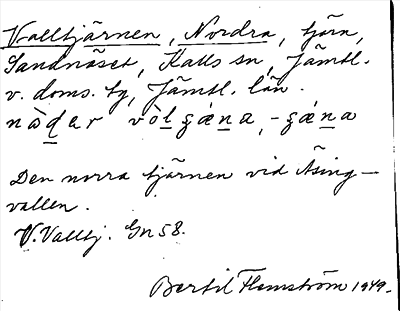 Valltjärnen, Nordra, tjärn,
Sandnäset, Kalls sn, Jämtl.
v. doms. tg, Jämtl. län.
Den norra tjärnen vid Åsing-
vallen.
V. Valltj. Gn 58.
Bertil Flemström 1949.